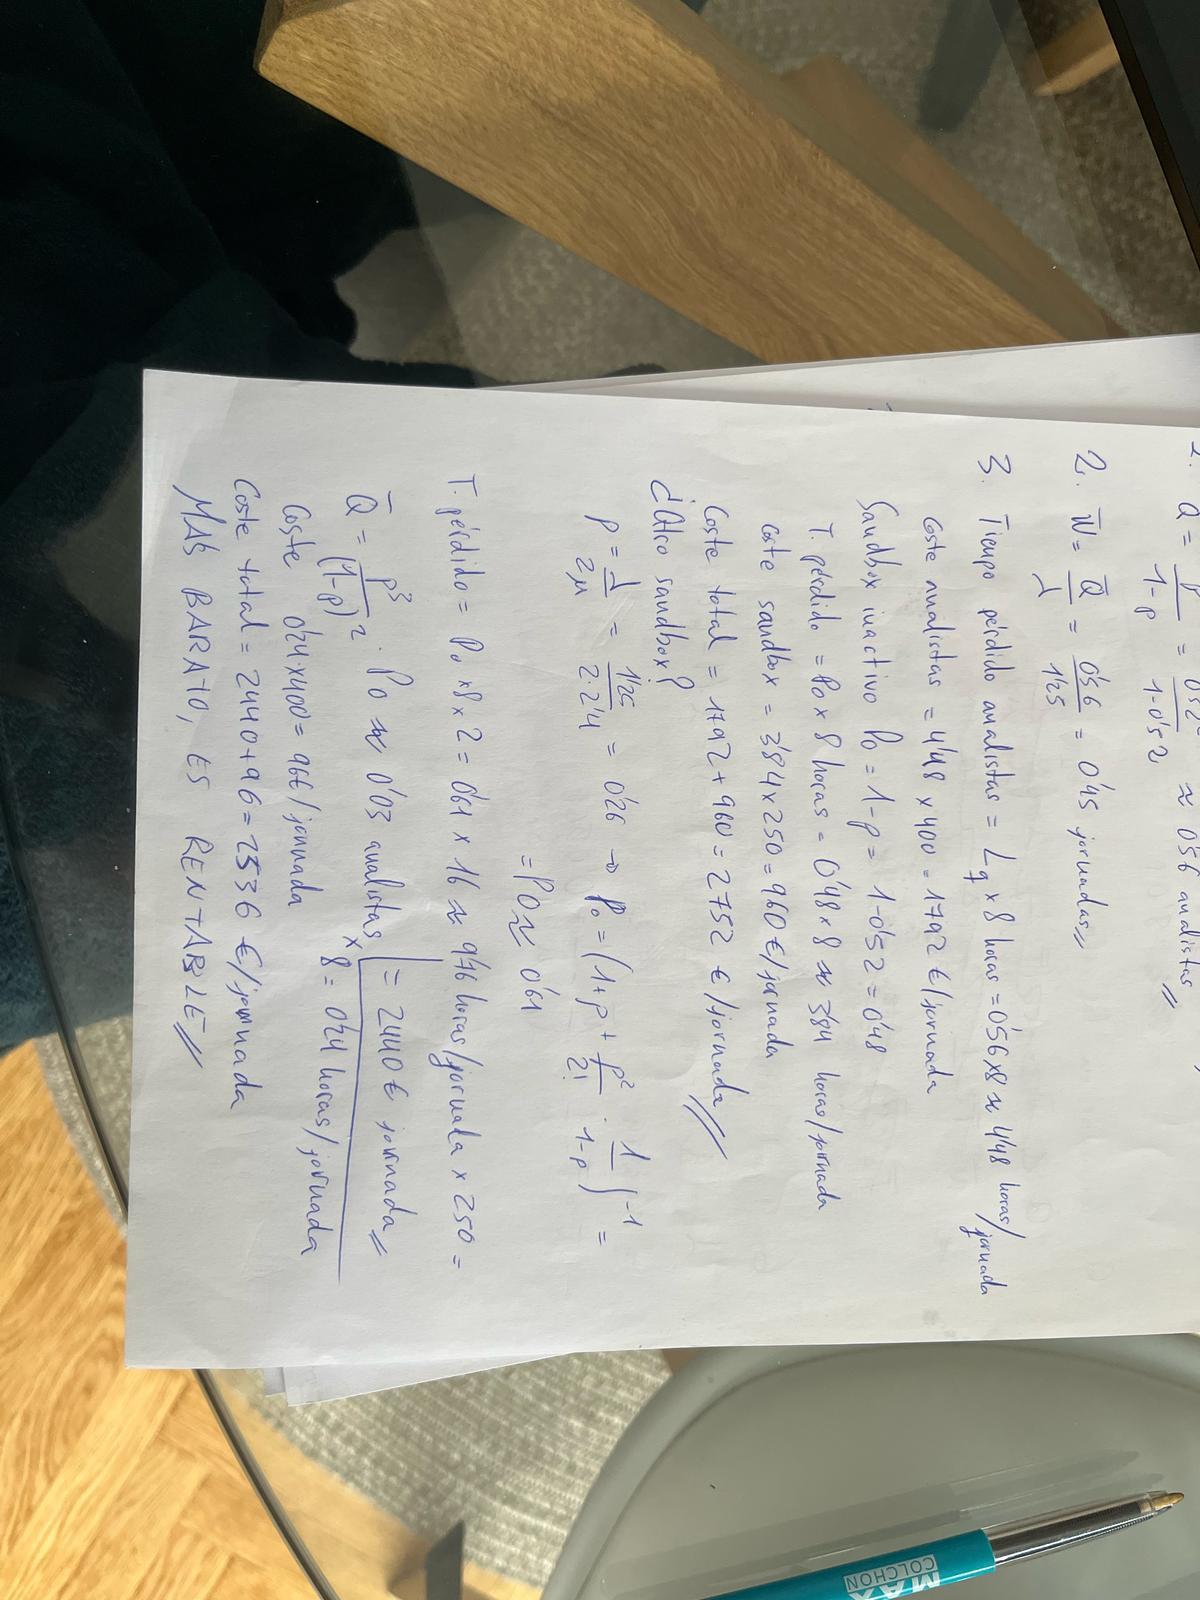 Q̄ = p²/(1-p) = 0'52²/(1-0'52) ≈ 0'56 analistas
2. W̄ = Q̄/λ = 0'56/1'25 = 0'45 jornadas
3. Tiempo pérdido analistas = Lq x 8 horas = 0'56x8 ≈ 4'48 horas/jornada
Coste analistas = 4'48 x 400 = 1792 €/jornada
Sandbox inactivo P₀ = 1-p = 1-0'52 = 0'48
T. pérdido = P₀ x 8 horas = 0'48 x 8 ≈ 3'84 horas/jornada
Coste sandbox = 3'84 x 250 = 960 €/jornada
Coste total = 1792 + 960 = 2752 €/jornada
¿Otro sandbox?
p = λ/2μ = 1'25/2·2'4 = 0'26 → P₀ = (1 + p + p²/2! · 1/1-p)⁻¹ =
= P0 ≈ 0'61
T. pérdido = P₀ x 8 x 2 = 0'61 x 16 ≈ 9'76 horas/jornada x 250 =
= 2440 € jornada
Q̄ = p³/(1-p)² · P₀ ≈ 0'03 analistas
x 8 = 0'24 horas/jornada
Coste 0'24x400 = 96€/jornada
Coste total = 2440 + 96 = 2536 €/jornada
MÁS BARATO, ES RENTABLE
MAX
COLCHON